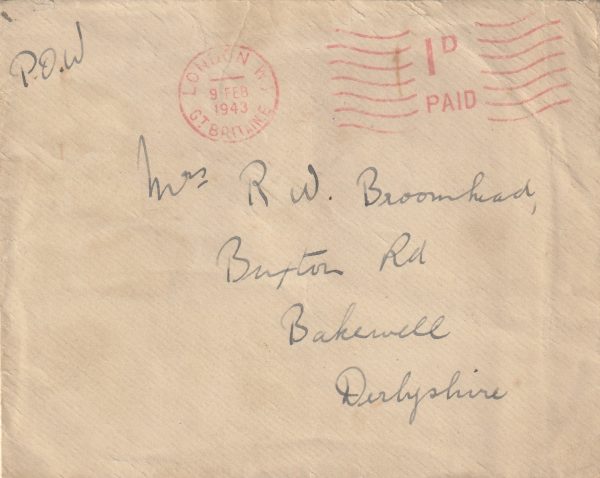 P.O.W
LONDON W.
9 FEB
1943
GT. BRITAIN
1D
PAID
Mrs R W. Broomhead,
Buxton Rd
Bakewell
Derbyshire